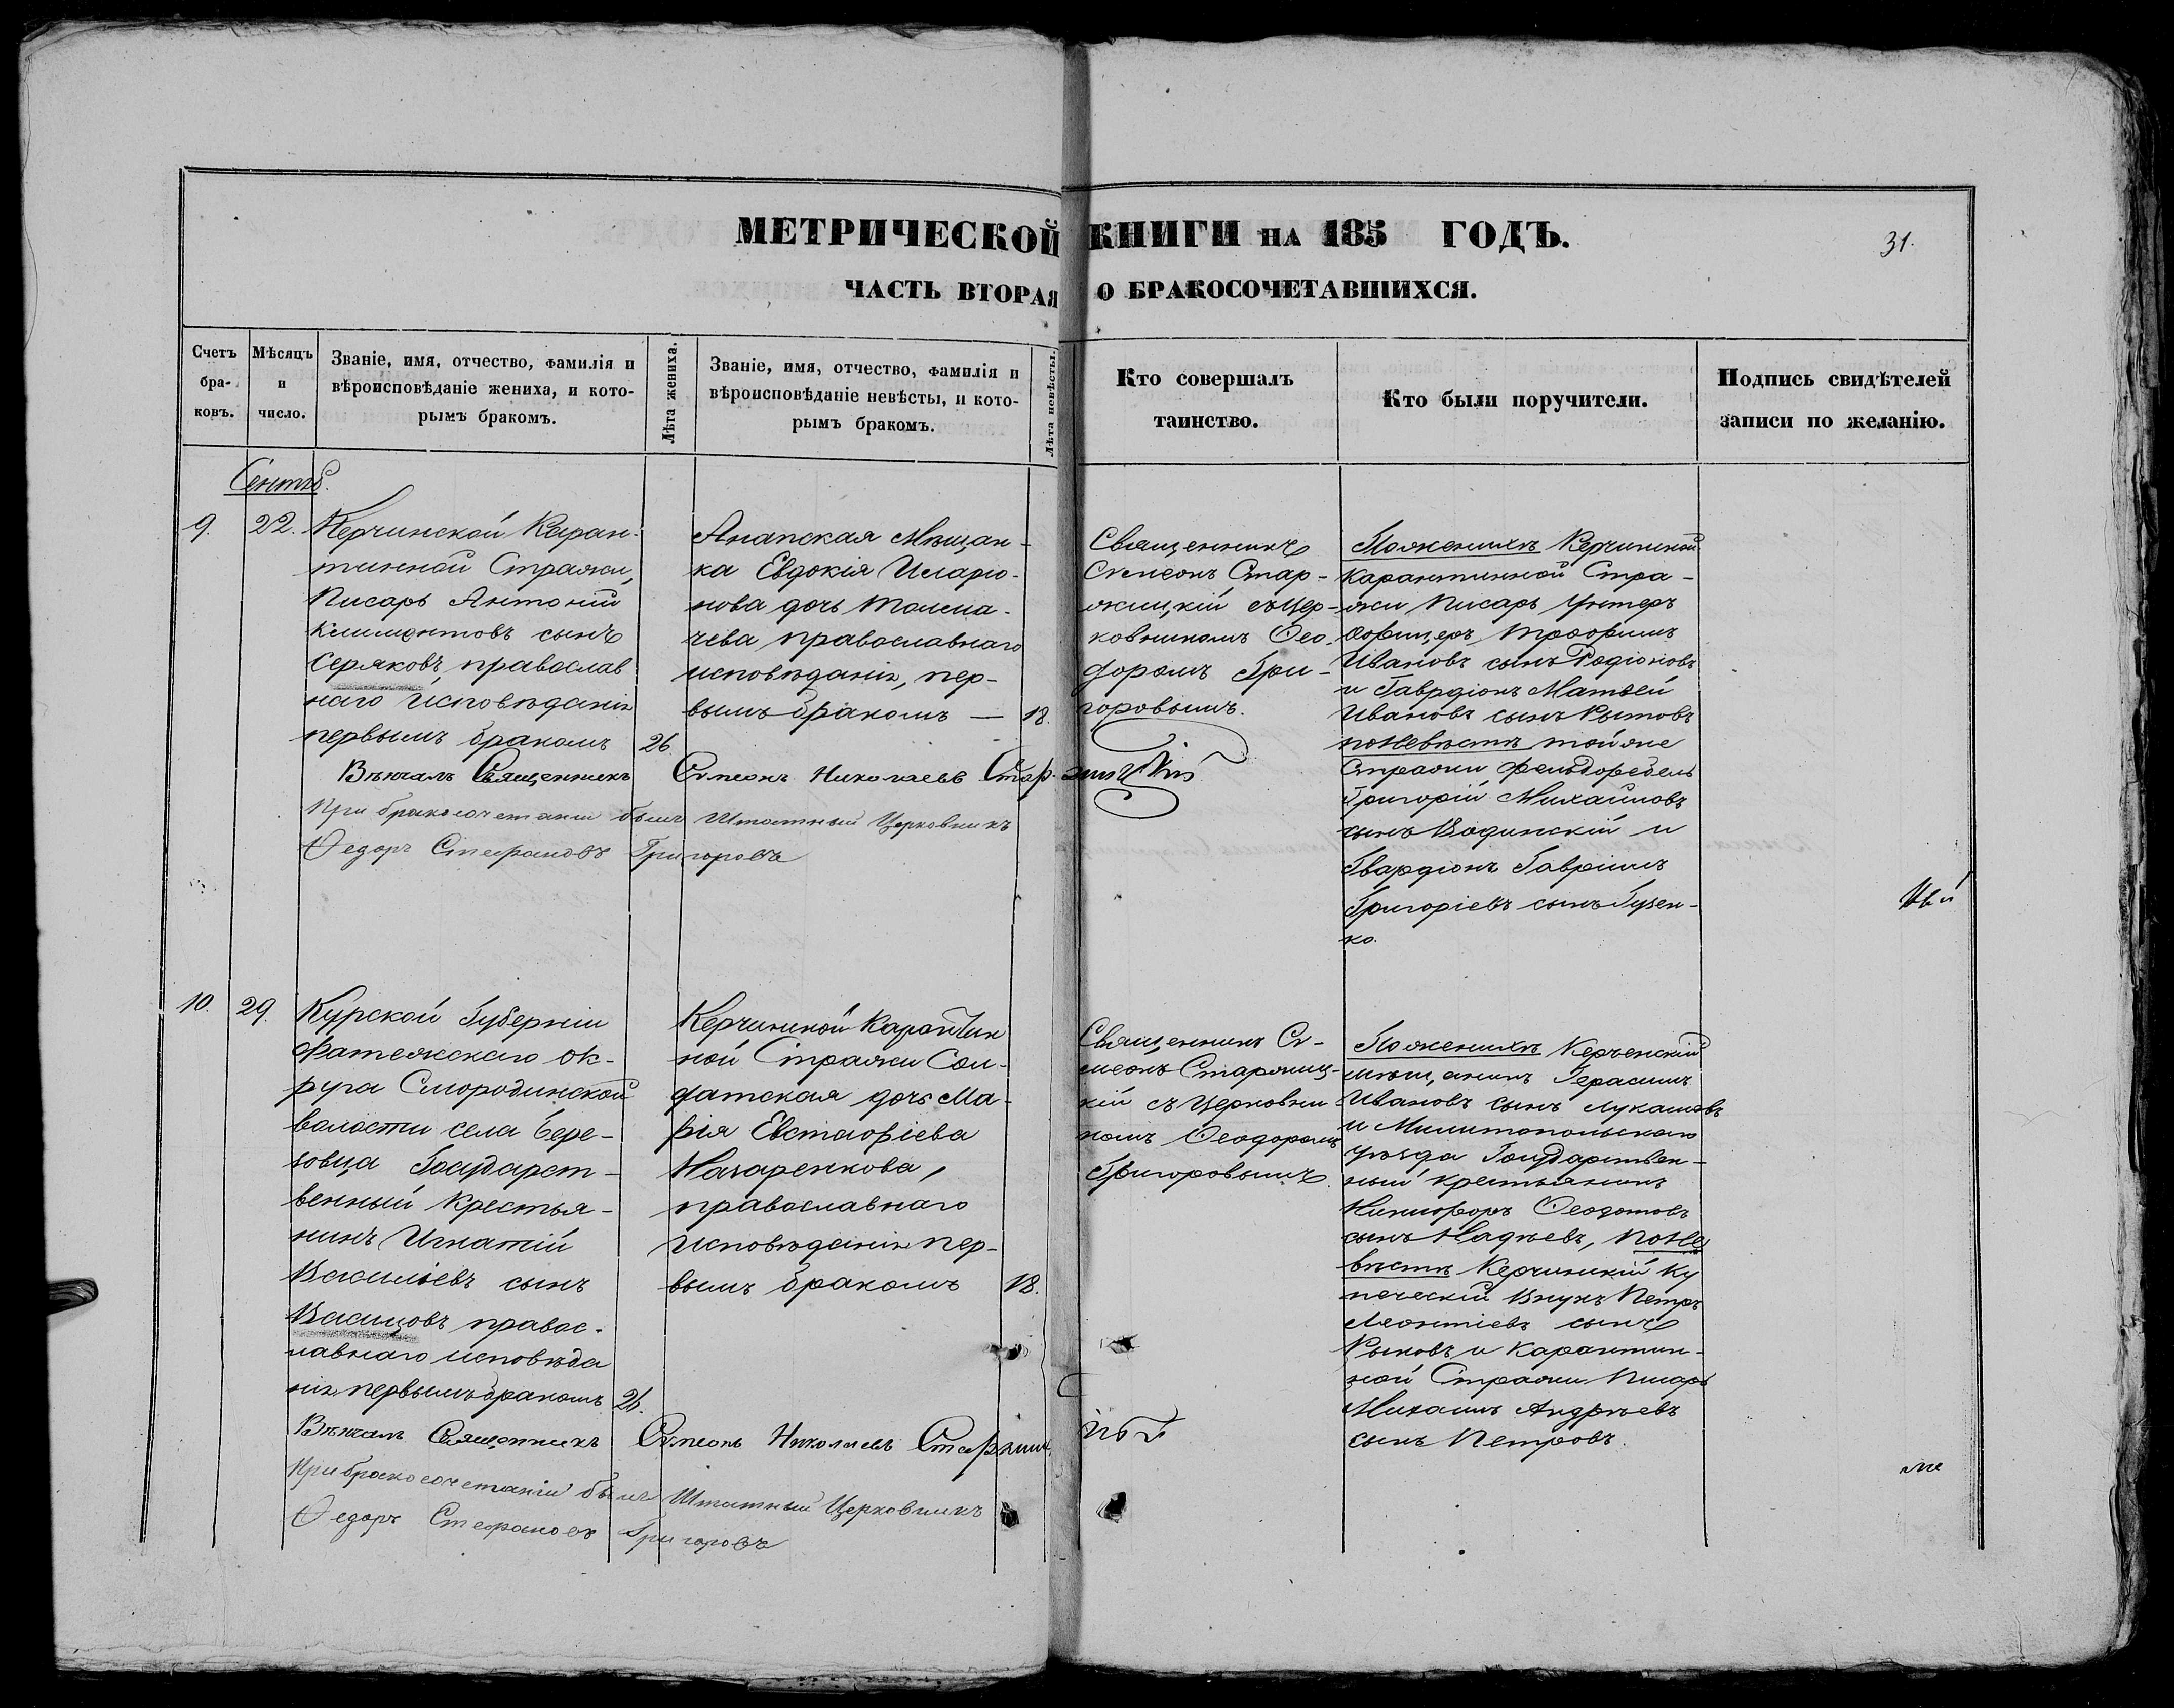 МЕТРИЧЕСКОЙ КНИГИ НА 185 ГОДЪ.
31.
ЧАСТЬ ВТОРАЯ О БРАКОСОЧЕТАВШИХСЯ.
Счетъ бра-ковъ.
Мѣсяцъ и число.
Званіе, имя, отчество, фамилія и
вѣроисповѣданіе жениха, и кото-
рымъ бракомъ.
Лѣта жениха.
Званіе, имя, отчество, фамилія и
вѣроисповѣданіе невѣсты, и кото-
рымъ бракомъ.
Лѣта невѣсты.
Кто совершалъ
таинство.
Кто были поручители.
Подпись свидѣтелей
записи по желанію.
Сентяб.
9.
22.
Керчинской Каран-
тинной Стражи,
Писарь Антоній
Климентовъ сынъ
Серяковъ, православ
наго исповѣданія
первымъ бракомъ
26.
Анапская Мѣщан-
ка Евдокія Иларіо-
нова дочь Толма-
чева православнаго
исповѣданія, пер-
вымъ бракомъ —
18.
Священникъ
Симеонъ Стар-
жицкій съ Цер-
ковникомъ Ѳео-
доромъ Гри-
горовымъ.
По женихѣ Керчинской
Карантинной Стра-
жи Писарь Унтеръ
Офицеръ Трофимъ
Ивановъ сынъ Родіоновъ
и Гвардіонъ Матвей
Ивановъ сынъ Рытовъ
по невѣстѣ той же
Стражи Фельдфебель
Григорій Михайловъ
сынъ Водинскій и
Гвардіонъ Гавріилъ
Григоріевъ сынъ Гузен-
ко.
Вѣнчалъ Священникъ Симеонъ Николаевъ Старжицкій
При бракосочетаніи былъ Штатный Церковникъ
Ѳедоръ Стефановъ Григоровъ
10.
29.
Курской Губерніи
Фатежскаго Ок-
руга Смородинской
волости села Бере-
зовца Государст-
венный Крестья-
нинъ Игнатій
Васильевъ сынъ
правос-
лавнаго исповѣда
нія первымъ бракомъ
26.
Керчинской Карантин
ной Стражи Сол-
датская дочь Ма-
рія Евстафіева
Назаренкова,
православнаго
исповѣданія пер-
вымъ бракомъ
18.
Священникъ Си-
меонъ Старжиц-
кій съ Церковни
комъ Ѳеодоромъ
Григоровымъ.
По женихѣ Керченскій
мѣщанинъ Герасимъ
Ивановъ сынъ Лукашовъ
и Милитопольскаго
уѣзда Государствен-
ный крестьянинъ
Никифоръ Ѳеодотовъ
сынъ Надѣевъ, по не
вѣстѣ Керчинскій Ку
печескій внукъ Петръ
Леонтіевъ сынъ
Рыковъ и Карантин-
ной Стражи Писарь
Михаилъ Андреевъ
сынъ Петровъ.
Вѣнчалъ Священникъ Симеонъ Николаевъ
При бракосочетаніи былъ Штатный Церковникъ
Ѳедоръ Стефановъ Григоровъ